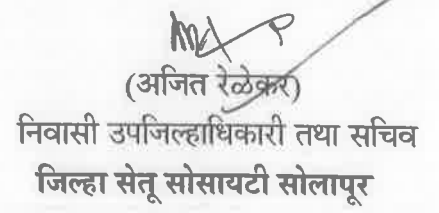 (अजित रेळेकर)
निवासी उपजिल्हाधिकारी तथा सचिव
जिल्हा सेतू सोसायटी सोलापूर